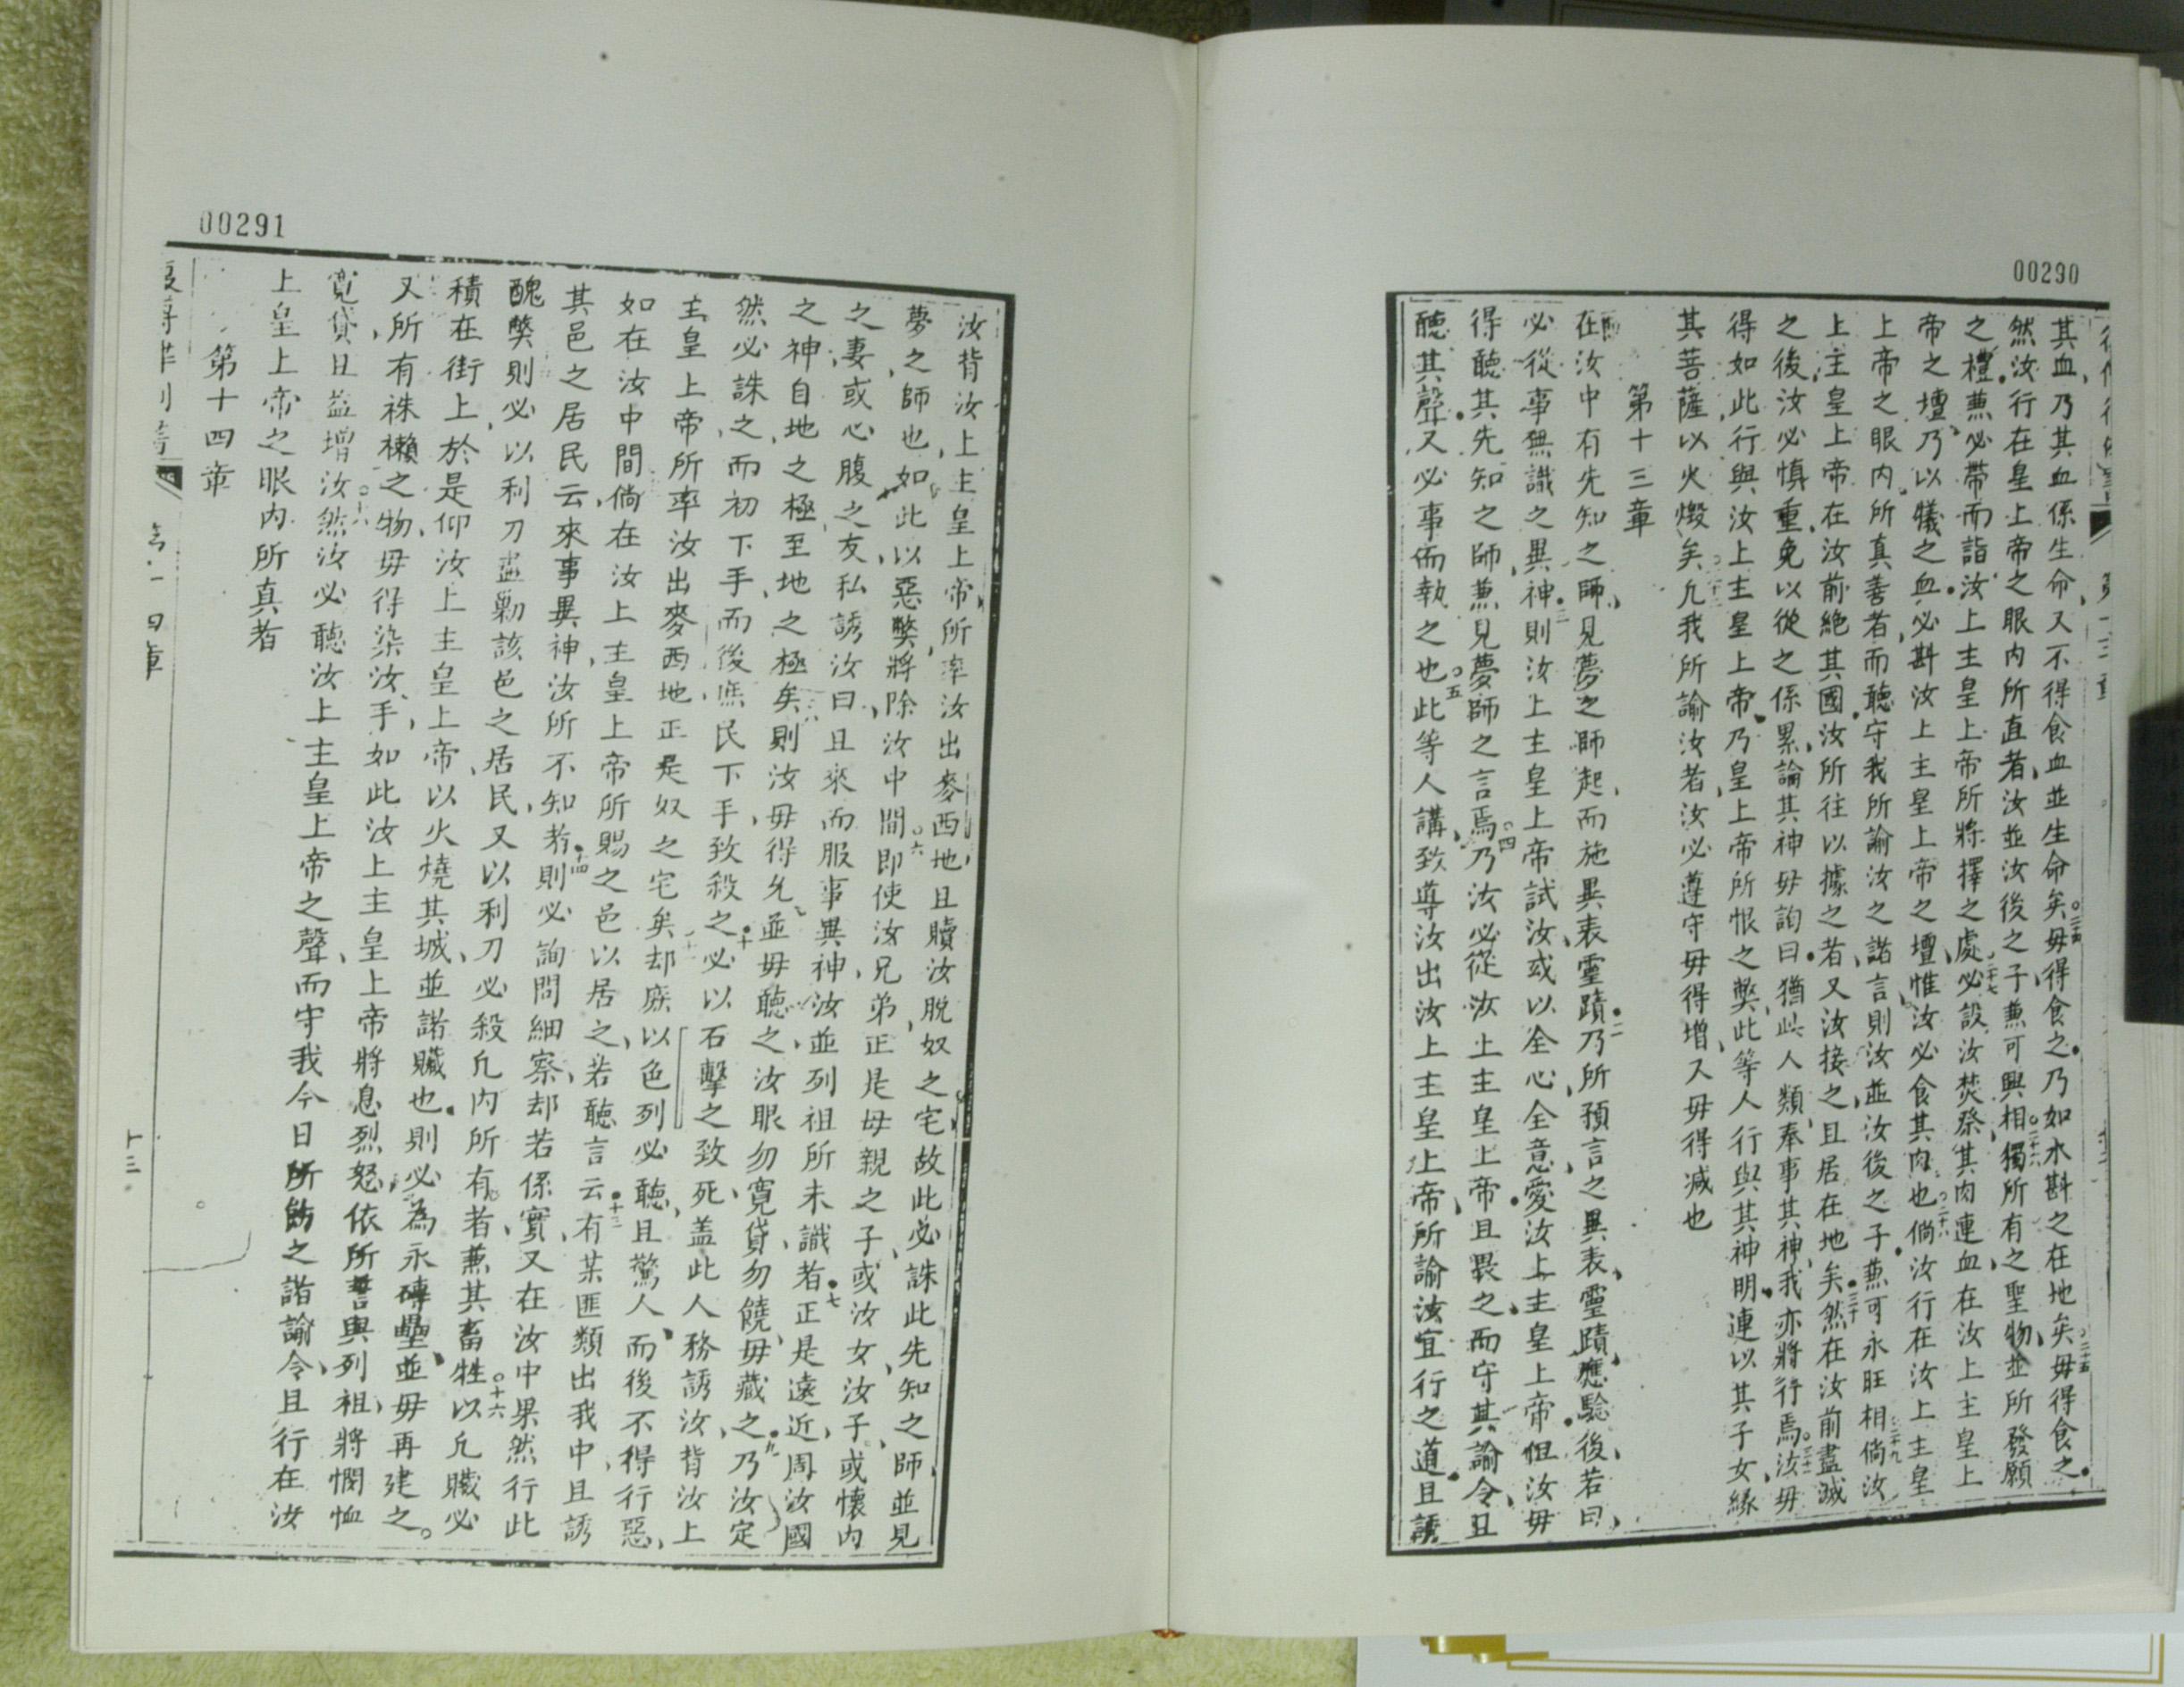 00290
其血乃其血係生命又不得食血並生命矣毋得食之乃如水斟之在地矣毋得食之
然汝行在皇上帝之眼內所直者汝並汝後之子兼可興相獨所有之聖物並所發願
之禮兼必帶而詣汝上主皇上帝所將擇之處必設汝焚祭其肉連血在汝上主皇上
帝之壇乃以犧之血必斟汝上主皇上帝之壇惟汝必食其肉也倘汝行在汝上主皇
上帝之眼內所真善者而聽守我所諭汝之諸言則汝並汝後之子兼可永旺相倘汝
上主皇上帝在汝前絶其國汝所往以據之者又汝接之且居在地矣然在汝前盡滅
之後汝必慎重免以從之係累論其神毋詢曰猶此人類奉事其神我亦將行焉汝毋
得如此行與汝上主皇上帝乃皇上帝所恨之獘此等人行與其神明連以其子女緣
其菩薩以火燬矣凢我所諭汝者汝必遵守毋得增又毋得減也
第十三章
在汝中有先知之師見夢之師起而施異表靈蹟乃所預言之異表靈蹟應驗後若曰
必從事無識之異神則汝上主皇上帝試汝或以全心全意愛汝上主皇上帝但汝毋
得聽其先知之師兼見夢師之言焉乃汝必從汝上主皇上帝且畏之而守其諭令且
聽其聲又必事而執之也此等人講致導汝出汝上主皇上帝所諭汝宜行之道且誘
00291
汝背汝上主皇上帝所率汝出麥西地且贖汝脫奴之宅故此必誅此先知之師並見
夢之師也如此以惡獘將除汝中間即使汝兄弟正是母親之子或汝女汝子或懷內
之妻或心腹之友私誘汝曰且來而服事異神汝並列祖所未識者正是遠近周汝國
之神自地之極至地之極矣則汝毋得允並毋聽之汝眼勿寬貸勿饒毋藏之乃汝定
然必誅之而初下手而後庶民下手致殺之必以石擊之致死盖此人務誘汝背汝上
主皇上帝所率汝出麥西地正是奴之宅矣却庶以色列必聽且驚人而後不得行惡
如在汝中間倘在汝上主皇上帝所賜之邑以居之若聽言云有某匪類出我中且誘
其邑之居民云來事異神汝所不知者則必詢問細察却若係實又在汝中果然行此
醜獘則必以利刀盡勦該邑之居民又以利刀必殺凢內所有者兼其畜牲以凢贓必
積在街上於是仰汝上主皇上帝以火燒其城並諸贓也則必為永磚壘並毋再建之
又所有袾襰之物毋得染汝手如此汝上主皇上帝將息烈怒依所誓與列祖將憫恤
寬貸且益增汝然汝必聽汝上主皇上帝之聲而守我今日所飭之諸諭令且行在汝
上皇上帝之眼內所真者
第十四章
十三